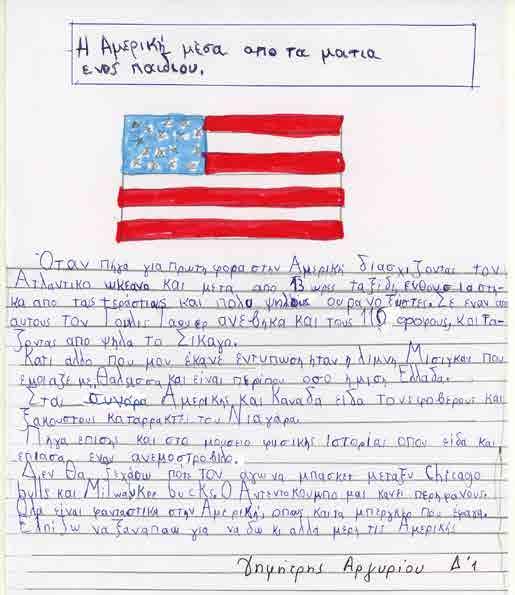 Η Αμερική μέσα απο τα ματια
ενος παιδιου.
Όταν πήγα για πρωτη φορα στην Αμερική διασχίζοντας τον
Ατλαντικο ωκεανο και μετα απο 13 ωρες ταξιδι, ενθουσιαστη-
κα απο τους τεράστιους και πολυ ψηλους ουρανοξυστες. Σε εναν απο
αυτους τον Γουιλις Ταουερ ανεβηκα και τους 110 οροφους, κοιτα-
ζοντας απο ψηλα το Σικαγο.
Κατι αλλο που μου έκανε εντυπωση ηταν η λιμνη Μισιγκαν που
εμοιαζε με θαλασσα και είναι περιπου οσο η μιση Ελλαδα.
Στα συνορα Αμερικης και Καναδα είδα τους φοβερους και
ξακουστους καταρρακτες του Νιαγάρα.
Πηγα επισης και στο μουσειο φυσικης Ιστοριας οπου είδα και
επιασα εναν ανεμοστροβιλο.
Δεν θα ξεχάσω ποτε τον αγωνα μπασκετ μεταξυ Chicago
bulls και Milwaukee bucks. Ο Αντετοκουμπο μας κανει περηφανους.
Ολα είναι φανταστικα στην Αμερική, οπως και τα μπεργκερ που εφαγα.
Ελπιζω να ξαναπαω για να δω κι αλλα μερη της Αμερικης
Δημητρης Αργυρίου Δ'1